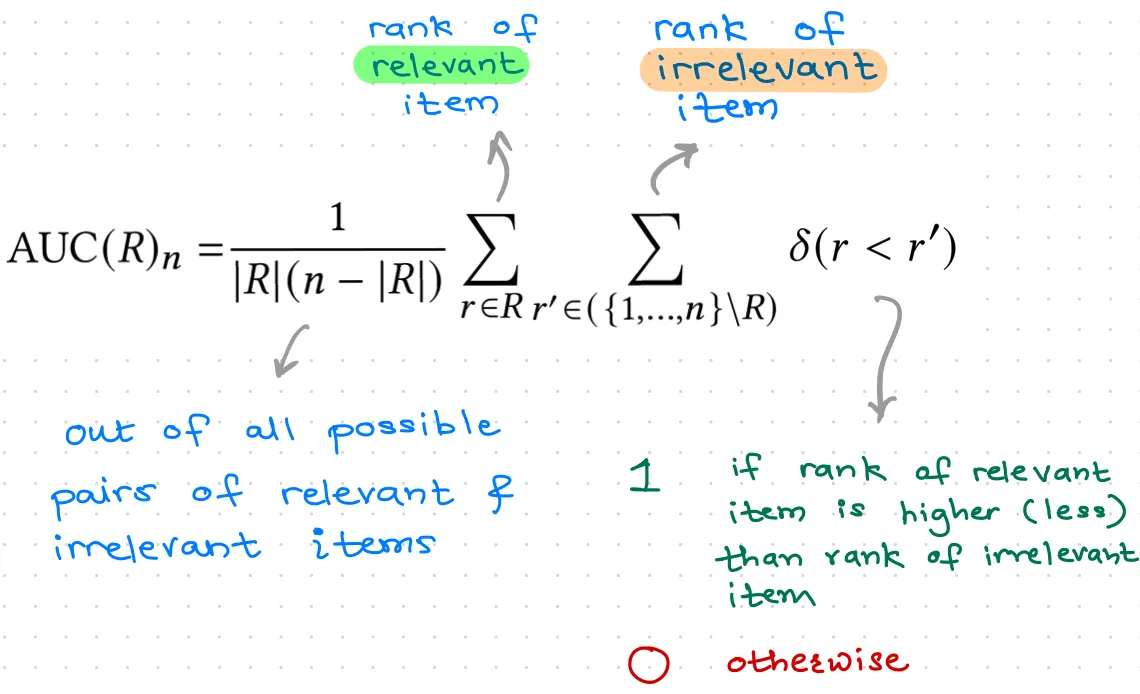 rank of
relevant
item
rank of
irrelevant
item
AUC(R)ₙ = 1 / |R|(n − |R|) ∑ r∈R ∑ r′∈({1,...,n}\R) δ(r < r′)
out of all possible
pairs of relevant &
irrelevant items
1 if rank of relevant
item is higher (less)
than rank of irrelevant
item
0 otherwise